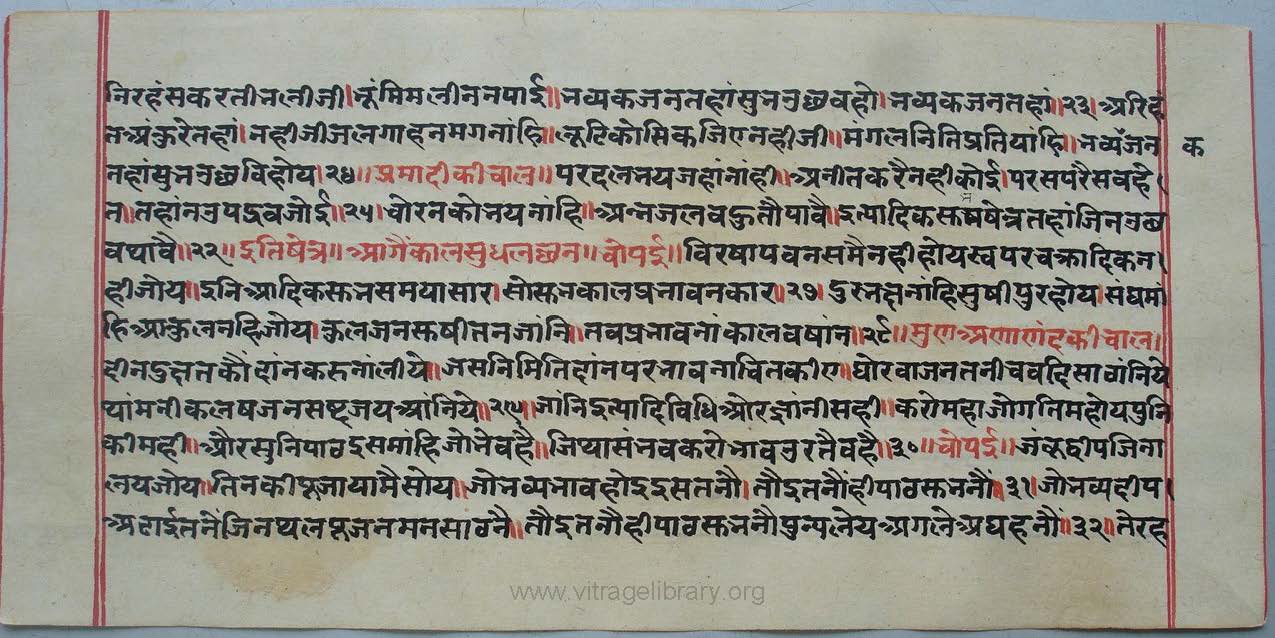 निरहंसकरतीनलीजी।भूंमिमलीननपाई॥भव्यकजनतहांसुभत्रछवहो।भव्यकजनतहां।२३।अरिहं
तअंकुरेतहां।नहीजीजलगाहनमगनांहि॥भूटिकोसिकजिएनहीजी॥मंगलनितिप्रतियांहि॥भव्यजन
क
तहांसुभत्रछविहोय।२४॥प्रमादीकीचाल॥परदलभयजहांनांही।अनीतकरैनहीकोई।परसपरैसवहे
त॥तहांनउपद्रवजोई॥२५।चोरनकोभयनांहि॥अन्नजलवहुतौपावै॥इत्यादिकसुभषेत्रतहांजिन
वथावै॥२२॥इतिषेत्र॥आगैंकालसुधलछन॥चोपई॥विरषापवनसमैनहीहोयस्वपरचक्रादिकन
हीजोय॥इनिआदिकसुभसमयासार।सोसुभकालप्रभावनकार॥२७।दुरभक्षनांहिसुषीपुरहोय।संघमां
हिआकुलनहिजोय।कुलजनसुषीतनजांनि॥तवप्रभावनांकालवषांन॥२८॥
दीनदुहातकौंदांनकरुनांलीये॥जसनिमितिदांनपरभावनावितकीए॥घोरवाजनतनीचवदिसावांनिये
यांमनीकलषजनसष्टजयआंनिये॥२९॥जांनिइत्यादिविधिओरज्ञांनीसही॥करोमहाजोगतिमहोयपुनि
कीमही॥औरसुनिपाठइसमांहिजोनेवहै॥जिथासंभवकरोभावउरतैवहै॥३०॥चोपई॥जंबूद्वीपजिना
लयजोय॥तिनकीपूजायामैसोय॥जोभव्यभावहोइइसतनौ॥तौइतनौंहीपाठसुभनौं॥३१।जोभव्यदीप
अढाईतनेंजिनथलपूजनमनसावनै॥तौइतनौहीपाठसुभनौपुन्यलेयअगलेअघहनौं॥३२॥तेरह
www.vitragelibrary.org